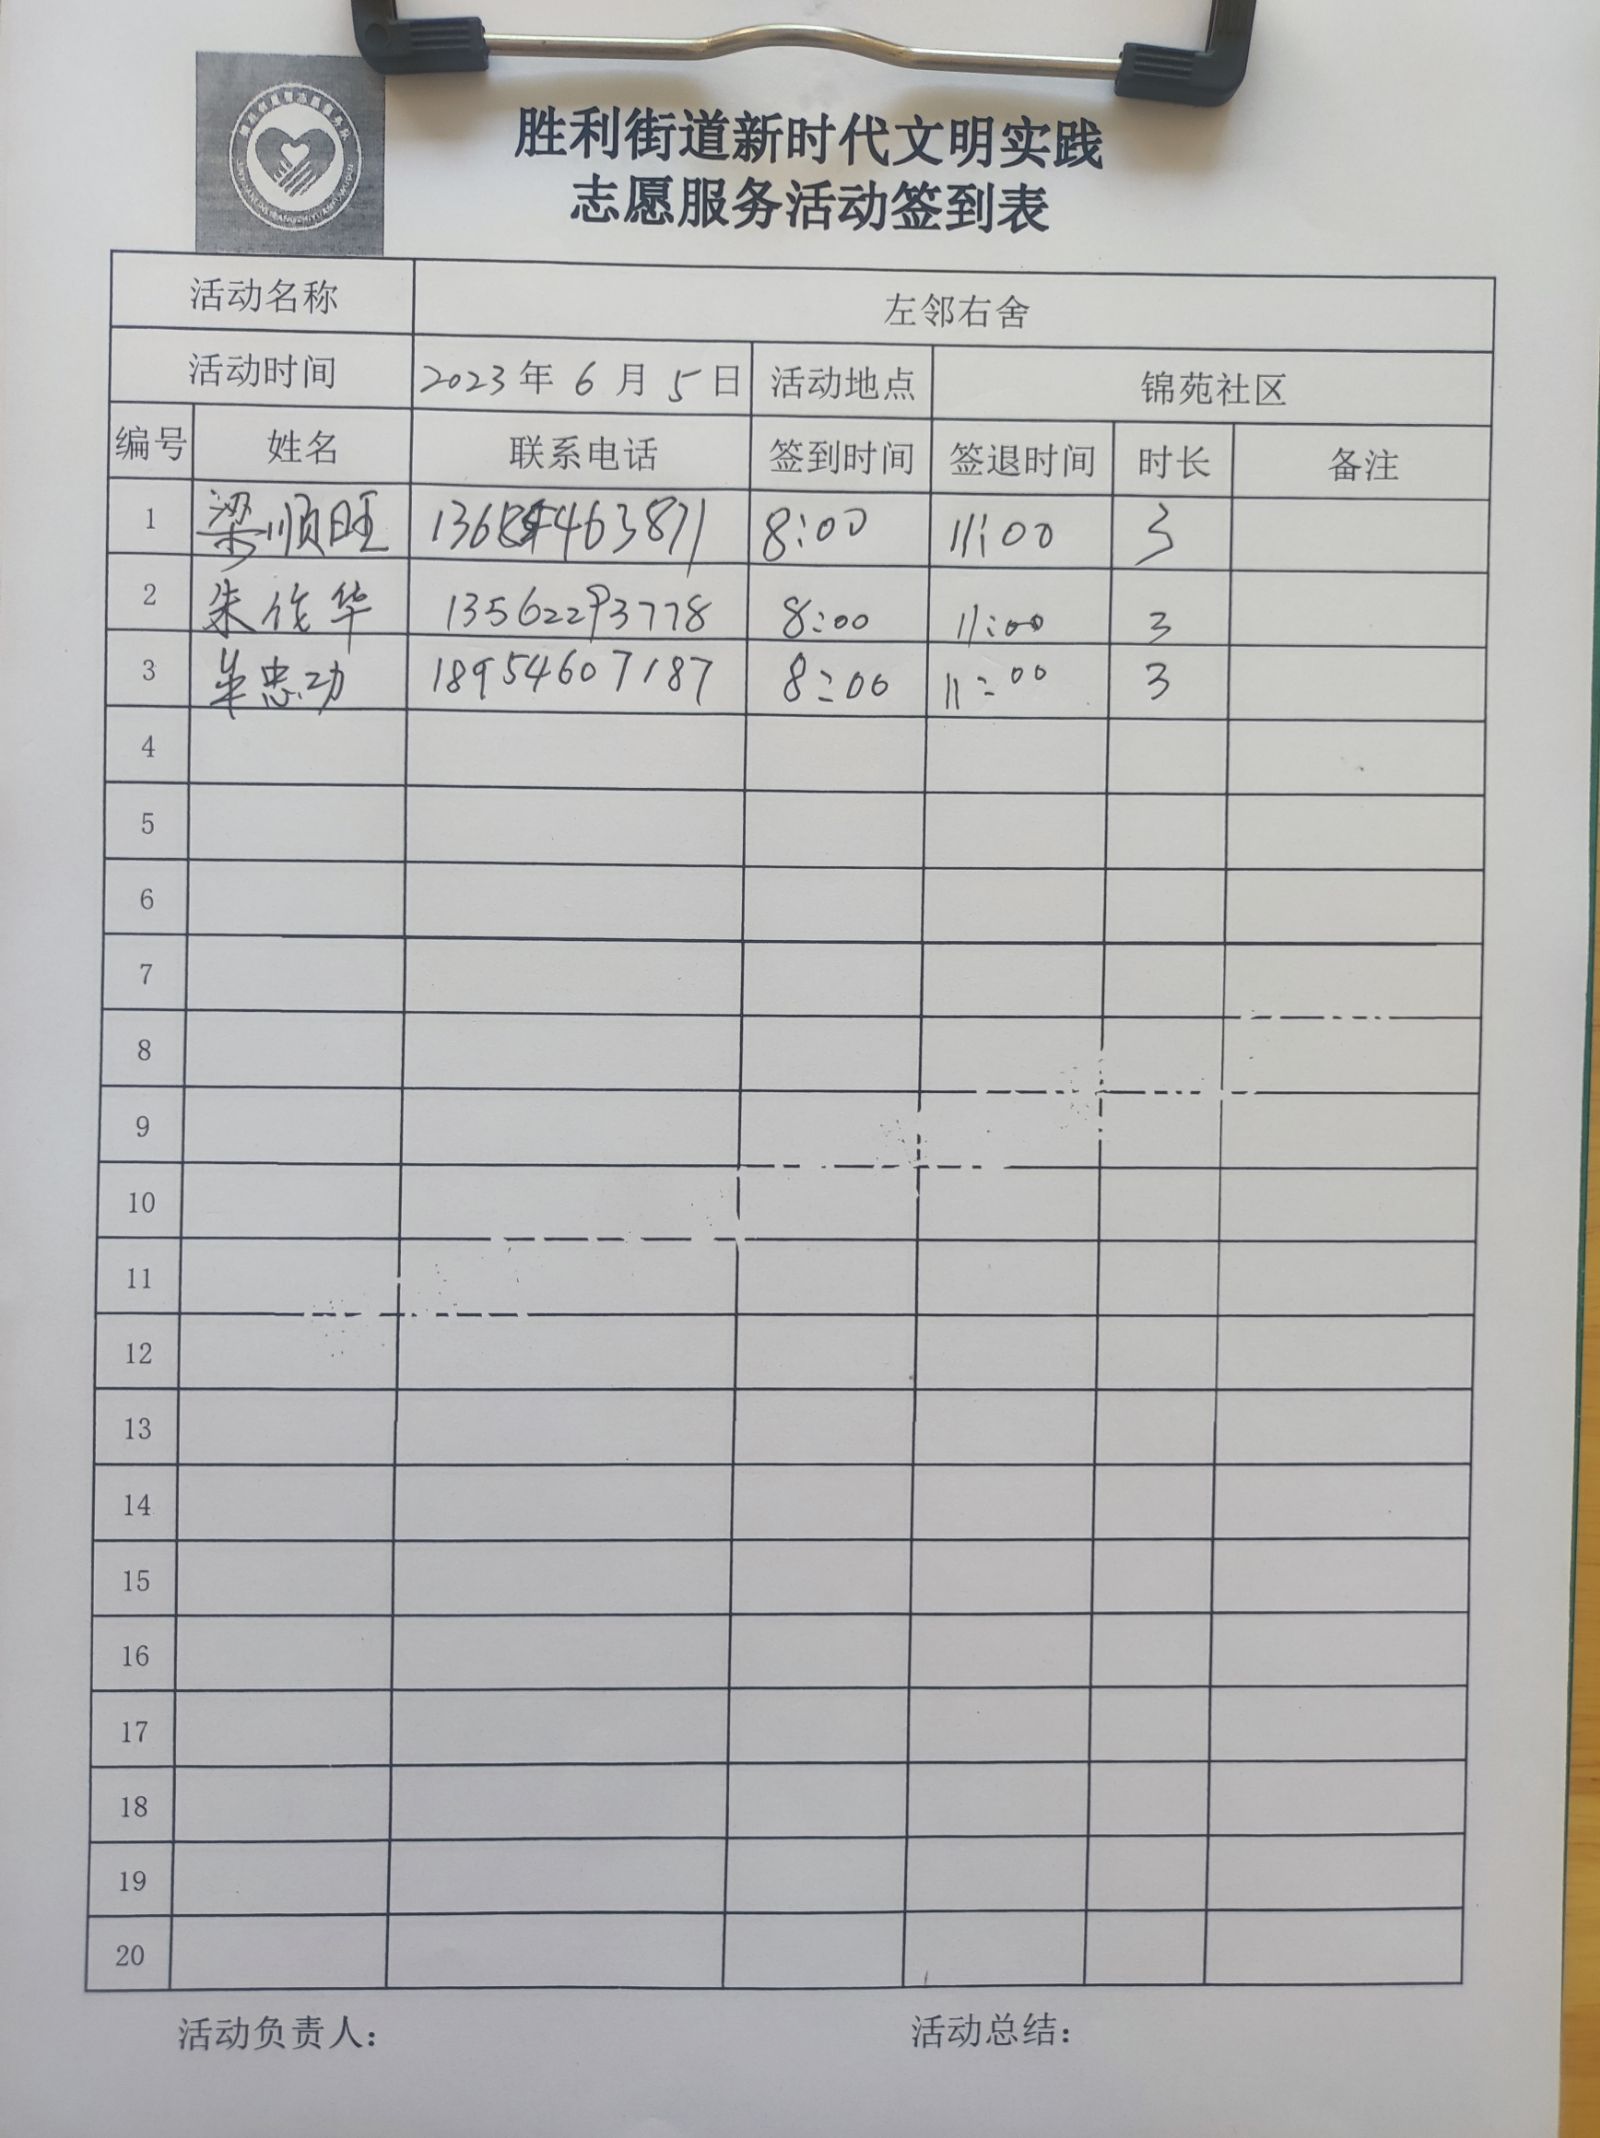 胜利街道新时代文明实践
志愿服务活动签到表
活动名称 左邻右舍
活动时间 2023年 6 月 5 日 活动地点 锦苑社区
编号 姓名 联系电话 签到时间 签退时间 时长 备注
1 梁顺旺 8:00 11:00 3
2 朱作华 13562293778 8:00 11:00 3
3 忠功 18954607187 8:00 11:00 3
4
5
6
7
8
9
10
11
12
13
14
15
16
17
18
19
20
活动负责人: 活动总结: